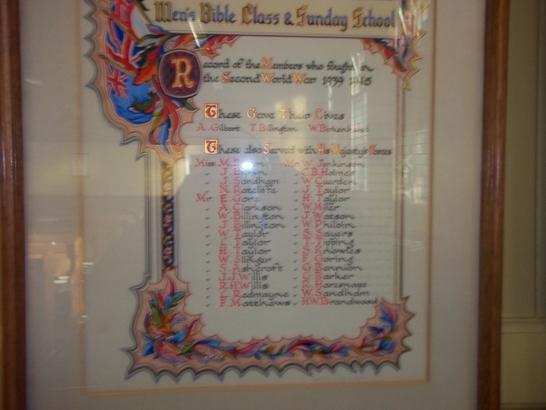 Men's Bible Class & Sunday School
Record of the Members who fought in
the Second World War 1939 1945
These Gave Their Lives
A. Gilbert T. Billington W. Birkenhead
These also Served with His Majesty's Forces
Miss M. Mr W. Jenkinson
" J. " C.B. Holmes
" J. Sandham " W. Cuerden
" " J. Taylor
Mr E. Gore " H. Taylor
" A. Clarkson " W.
" W. Billington " J. Watson
" J. Billington " W. Philbin
" W. Taylor " S. Sayers
" L. Taylor " J. Topping
" H. Taylor " F. Knowles
" W. " F. Goring
" S. Ashcroft " G.
" J.J. Willis " C. Barker
" R.H. Willis "
" F. Redmayne " W. Sandham
" F. Matthews " H.W. Brandwood